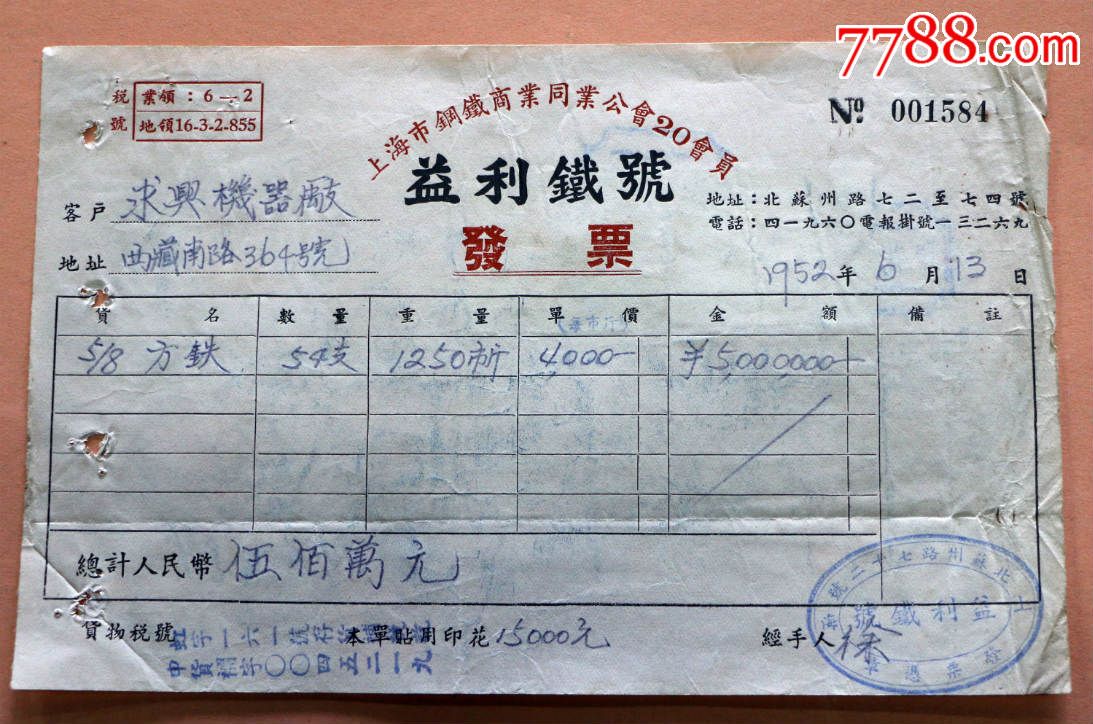 7788.com
税號
業領：6—2
地領16-3-2-855
上海市鋼鐵商業同業公會20會員
№ 001584
益利鐵號
地址：北蘇州路七二至七四號
電話：四一九六〇電報掛號一三二六九
發票
客戶 永興機器廠
地址 西藏南路364號
1952年6月13日
貨名 數量 重量 單價 金額 備註
(每市斤)
5/8方鉄 54支 1250市斤 4000— ￥5,000000—
總計人民幣 伍佰萬元
貨物稅號
本單貼用印花15000元
經手人 徐
中貨稠字〇〇四五二一九
北蘇州路七十二號
上海益利鐵號
發票憑章